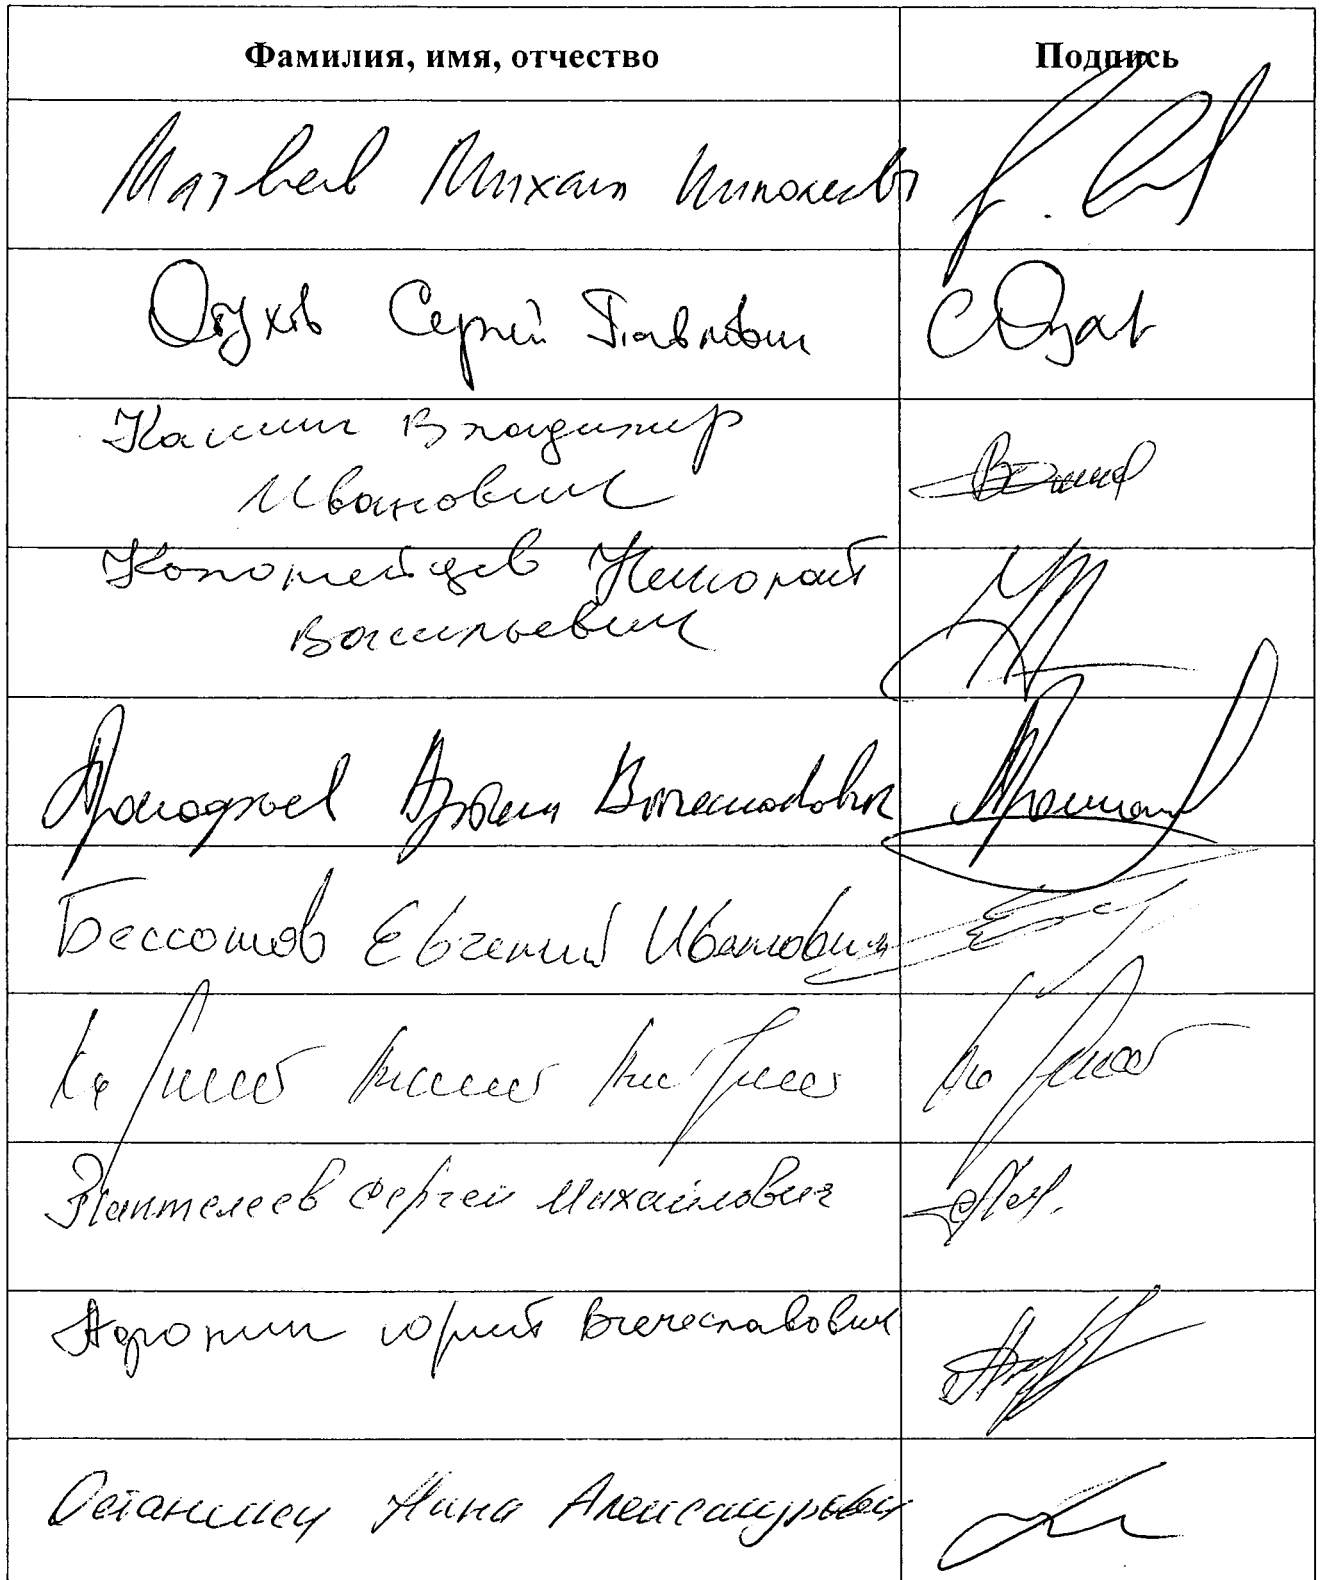 Фамилия, имя, отчество Подпись
Матвеев Михаил Николаевич
Обухов Сергей Павлович
Кашин Владимир
Иванович
Коломейцев Николай
Васильевич
Прокофьев Артём Вячеславович
Бессонов Евгений Иванович
Пантелеев Сергей Михайлович
Афонин Юрий Вячеславович
Останина Нина Александровна